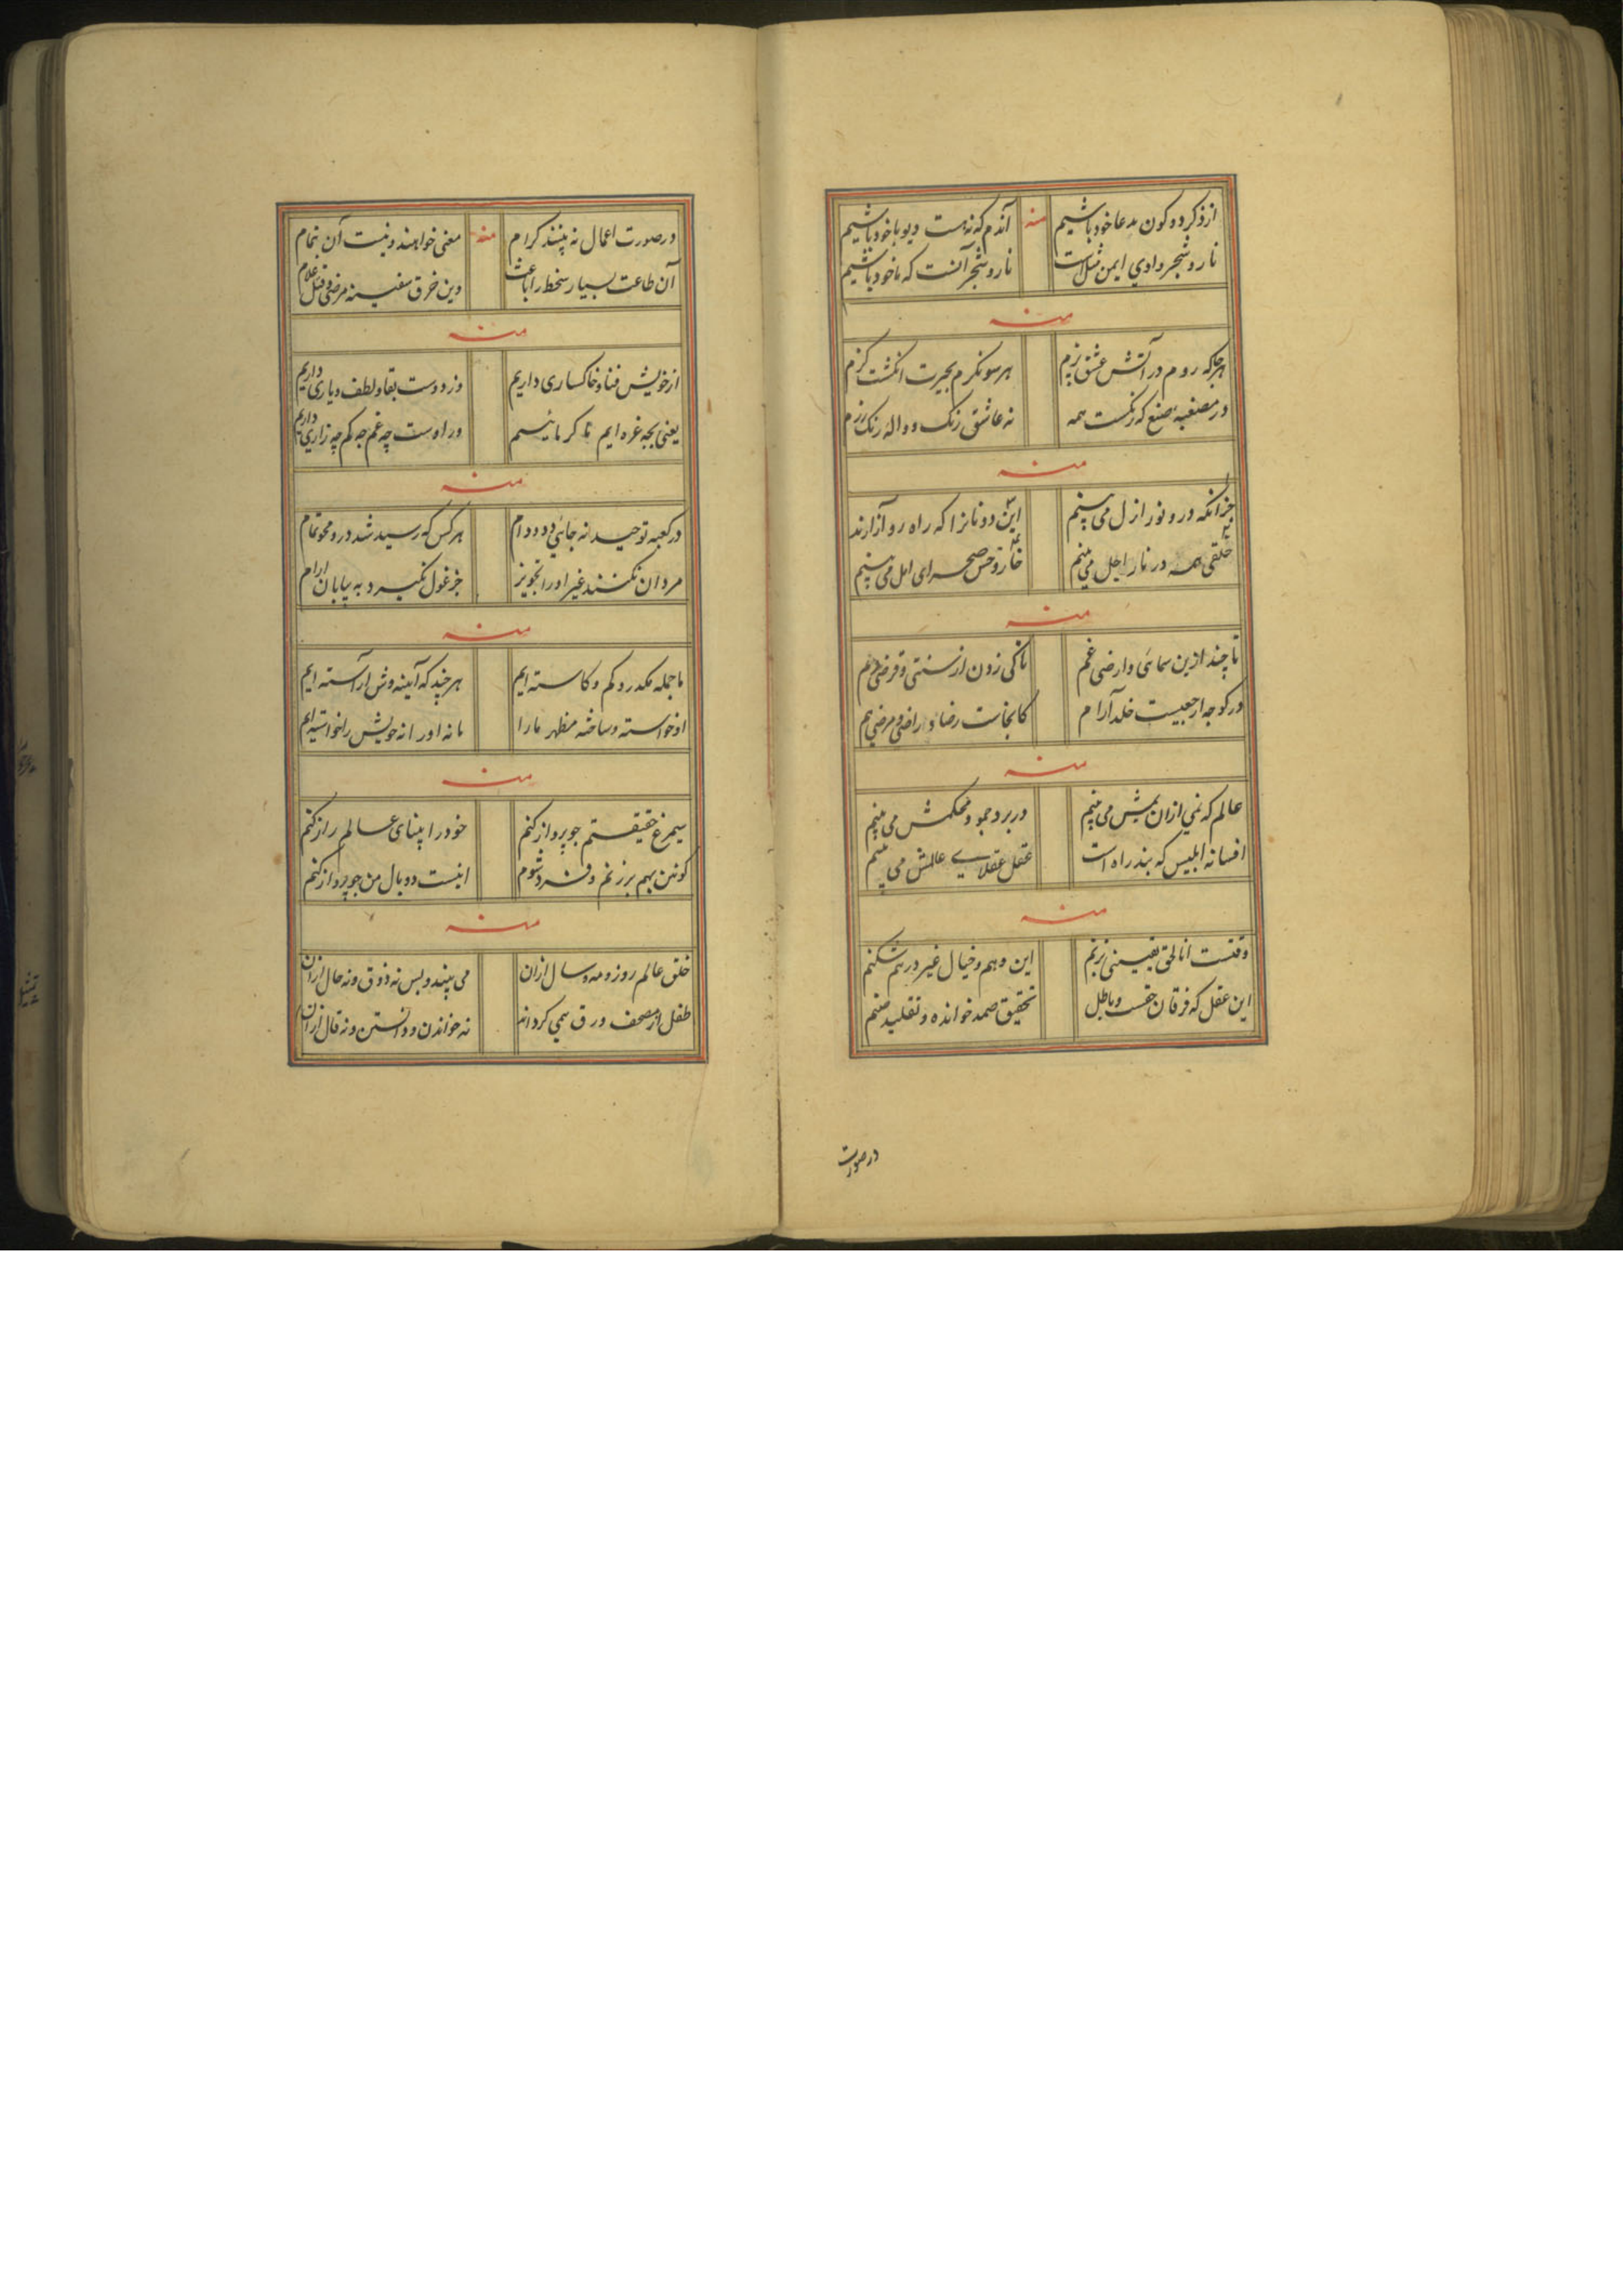 از ذکر دو کون مدعا خود باشیم منه آندم که نه هست دیو با خود باشیم
نار و شجر وادی ایمن مثل است نار و شجر آنست که ما خود باشیم
منه
هر جا که روم در آتش عشق پزم هر سو نگرم بحیرت انگشت گزم
در مصنعه صنع که رنگست همه نه عاشق رنگ و واله رنگ رزم
منه
جز آنکه درو نور ازل می بینم این دونانرا که راه رو آزارند
خلقی همه در نار اجل می بینم خار و خس صحرای امل می بینم
منه
تا چند ازین سمائی و ارضی غم تا کی زدن از سنتی و فرضی دم
در کوچه ارجعیست خلد آرام کانجاست رضا و راضی و مرضی هم
منه
عالم که نمی ازان یمش می بینم در برد جمود محکمش می بینم
افسانه ابلیس که بند راه است عقل عقلای عالمش می بینم
منه
وقتست انا الحق یقینی بزنم این وهم و خیال غیر در هم شکنم
این عقل که فرقان حقست و باطل تحقیق صمد خوانده و تقلید صنم
در صورت
در صورت اعمال نه بینند کرام منه معنی خواهند و نیست آن بتمام
آن طاعت بسیار سخط را باعث وین خرق سفینه مرضی و قتل غلام
منه
از خویش فنا و خاکساری داریم وز دوست بقا و لطف و یاری داریم
یعنی بچه غره ایم تا گر مائیم ور اوست چه غم چه کم چه زاری داریم
منه
در کعبه توحید نه جائی دد و دام هر کس که رسید شد درو محو تمام
مردان نکنند غیر او را تجویز جز غول نگیرد به بیابان ارام
منه
ما جمله مکدر و کم و کاسته ایم هر چند که آینه وش آراسته ایم
او خواسته و ساخته مظهر ما را ما نه او را نه خویش را خواسته ایم
منه
سیمرغ حقیقتم چو پرواز کنم خود را بینای عالم راز کنم
کونین بهم بر زنم و فرد شوم اینست دو بال من چو پرواز کنم
منه
خلق عالم روز و مه و سال ازان می بیند و بس نه ذوق و نه حال ازان
طفل از مصحف ورق همی گرداند نه خواندن و دانستن و نه قال ازان